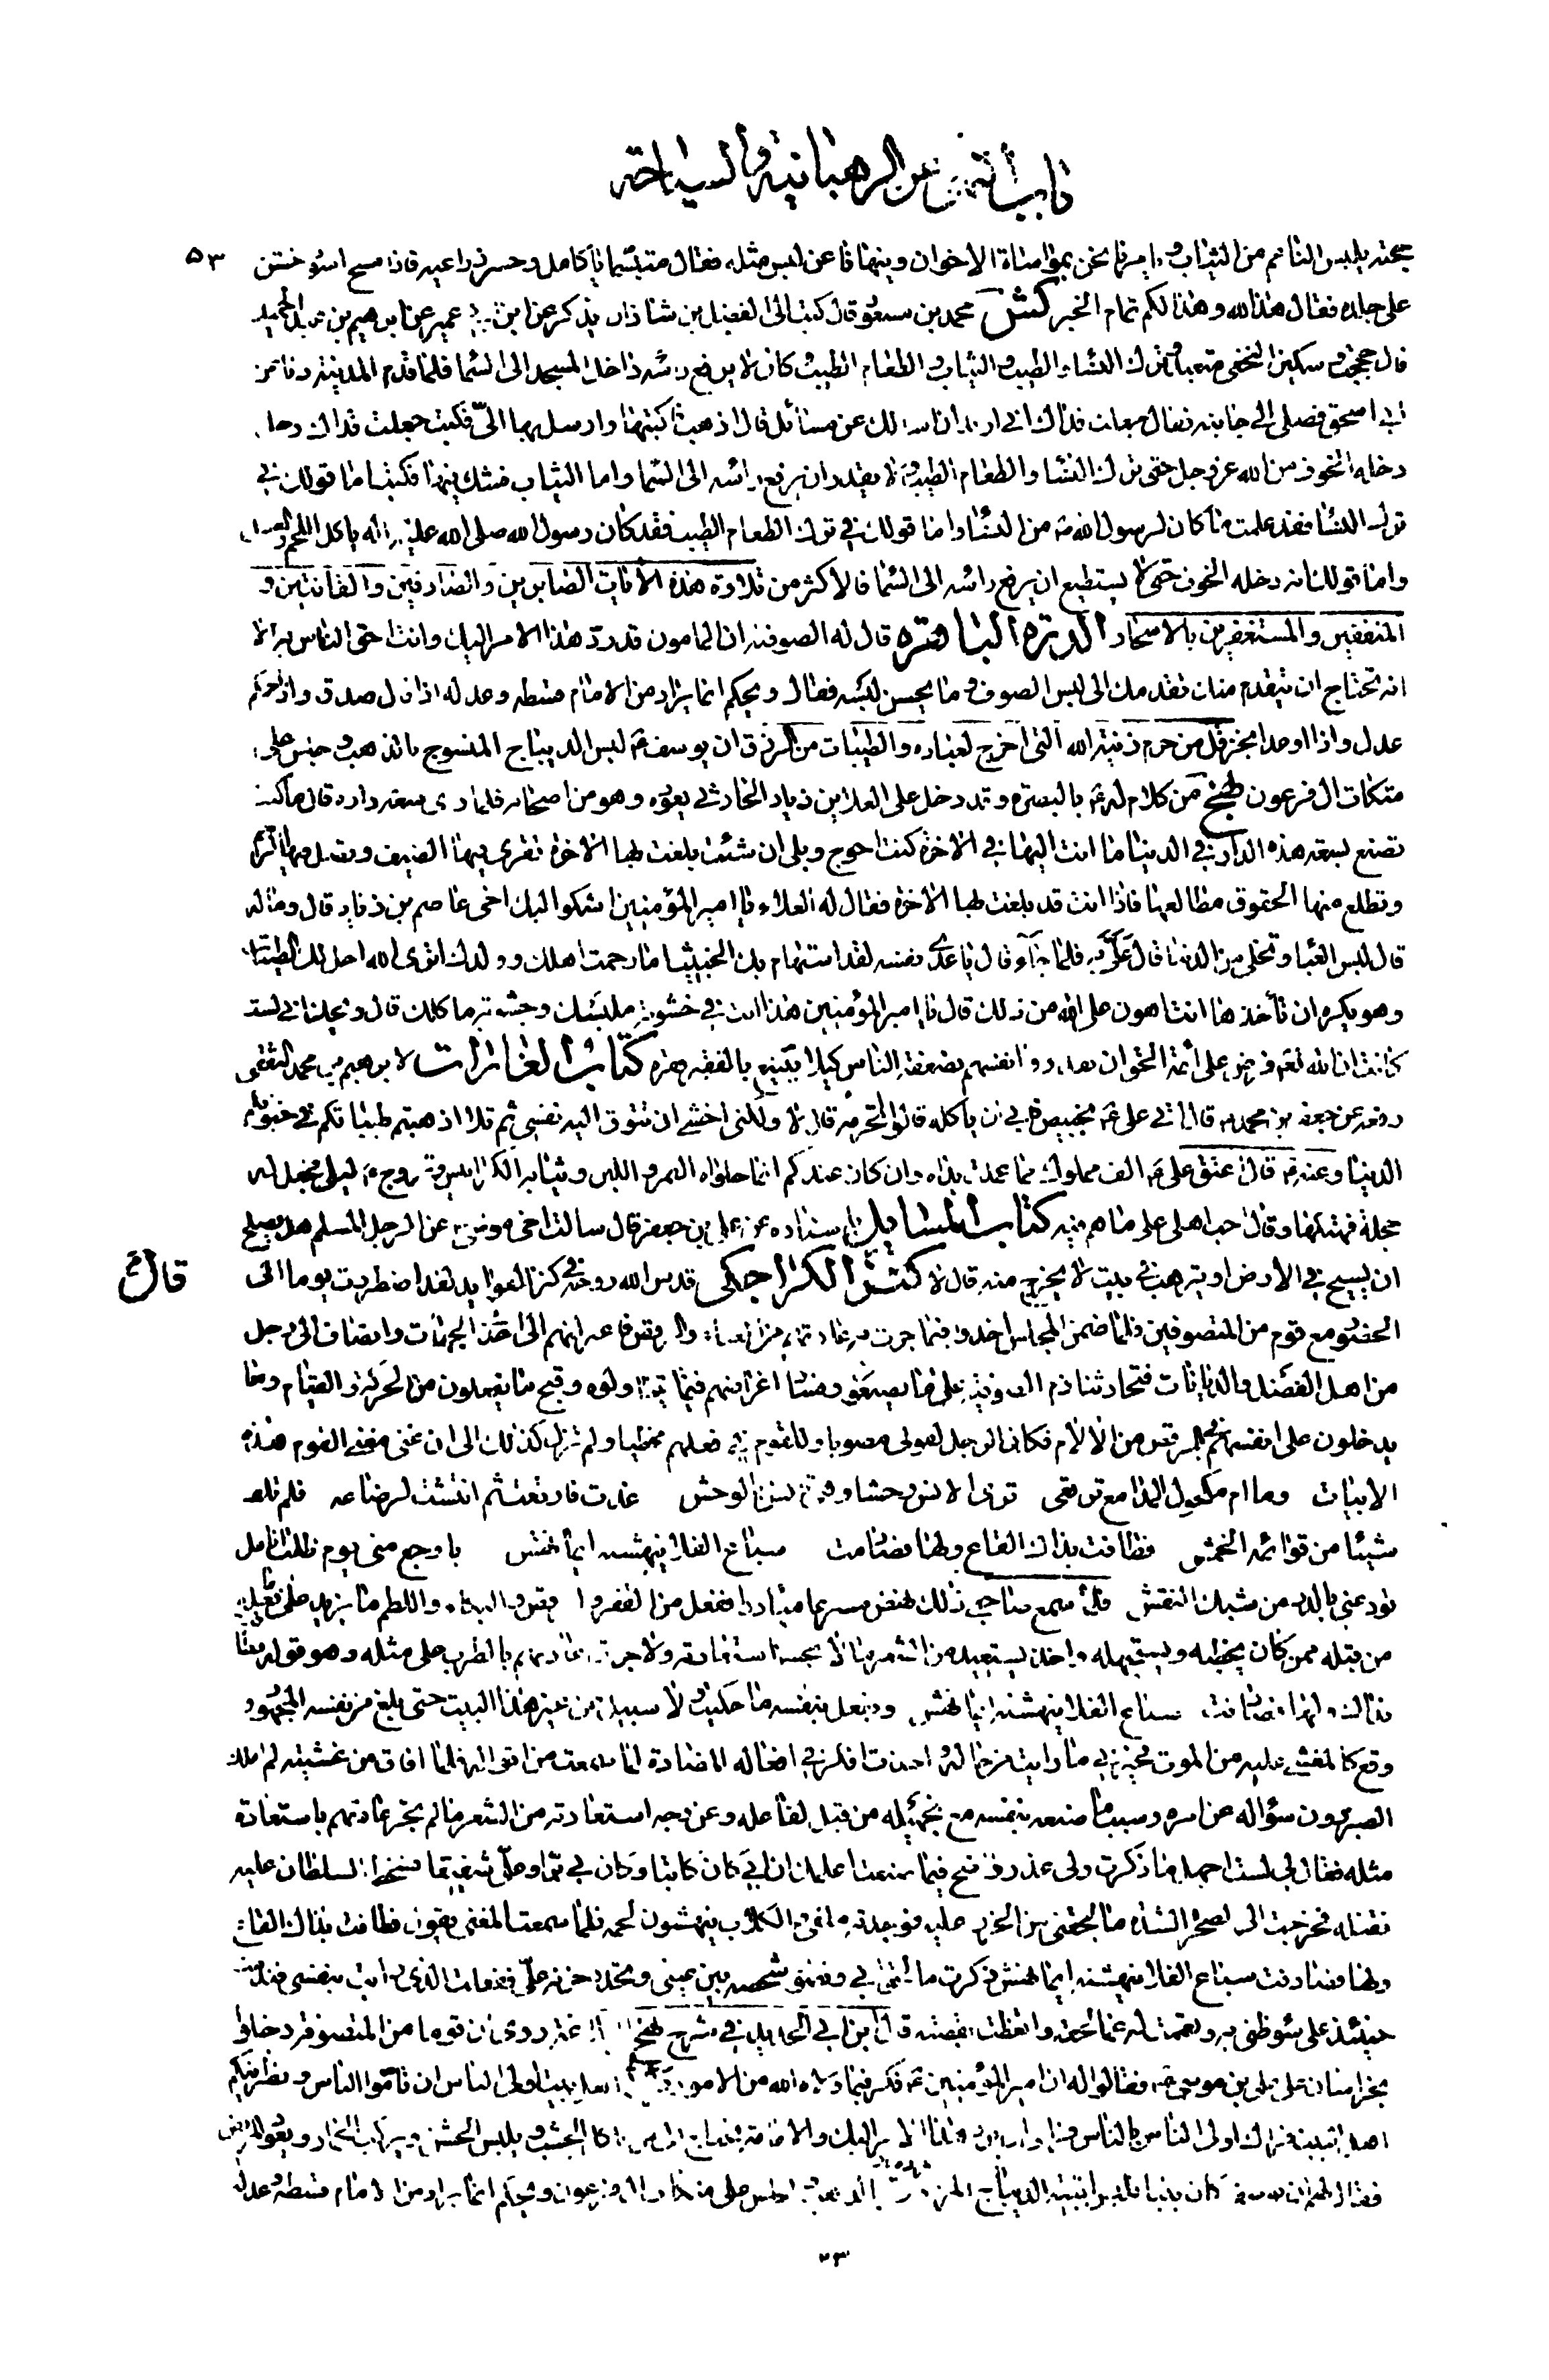 باب النهي عن الرهبانية والسياحة
٥٣
حجته يلبس الناعم من الثياب و يامرنا نحن بمواساة الاخوان وينهانا عن لبس مثله فقال متبسما يا كامل وحسر ذراعيه فاذا مسح اسود خشن
على جلده فقال هذا لله وهذا لكم تمام الخبر كش محمد بن مسعود قال كتب الى الفضل بن شاذان يذكر عن ابن ابي عمير عن ابرهيم بن عبد الحميد
قال حججت وسكين النخعي متعبد وترك النساء والطيب والثياب والطعام الطيب وكان لا يرفع راسه داخل المسجد الى السما فلما قدم المدينة دنا من
ابي اسحق فصلى الى جانبه فقال جعلت فداك اني اريد ان اسالك عن مسائل قال اذهب فاكتبها وارسل بها الى فكتب جعلت فداك رجل
دخله الخوف من الله عز وجل حتى ترك النسا والطعام الطيب ولا يقدر ان يرفع راسه الى السما واما الثياب فشك فيها فكتب اما قولك في
ترك النسا فقد علمت ما كان لرسول الله ص من النسا واما قولك في ترك الطعام الطيب فقد كان رسول الله صلى الله عليه واله ياكل اللحم والعسل
واما قولك انه دخله الخوف حتى لا يستطيع ان يرفع راسه الى السما فالاكثر من تلاوة هذه الايات الصابرين والصادقين والقانتين و
المنفقين والمستغفرين بالاسحار الدرة الباهرة قال له الصوفية ان المامون قد رد هذا الامر اليك وانت احق الناس به الا
انه تحتاج ان يتقدم منك تقدمك الى لبس الصوف وما يحسن لبسه فقال ويحكم انما يراد من الامام قسطه وعدله اذا قال صدق واذا حكم
عدل واذا وعد انجز قل من حرم زينة الله التي اخرج لعباده والطيبات من الرزق ان يوسف ع لبس الديباج المنسوج بالذهب وجلس على
متكات ال فرعون نهج من كلام له ع بالبصرة وقد دخل على العلا بن زياد الحارثي يعوده وهو من اصحابه فلما راى سعة داره قال ما كنت
تصنع بسعة هذه الدار في الدنيا اما انت اليها في الاخرة كنت احوج وبلى ان شئت بلغت بها الاخرة تقري فيها الضيف وتصل فيها الرحم
وتطلع منها الحقوق مطالعها فاذا انت قد بلغت بها الاخرة فقال له العلاء يا امير المؤمنين اشكو اليك اخي عاصم بن زياد قال وما له
قال لبس العبا وتخلى من الدنيا قال علي به فلما جاء قال يا عدي نفسه لقد استهام بك الخبيث اما رحمت اهلك وولدك اترى الله احل لك الطيبات
وهو يكره ان تأخذها انت اهون على الله من ذلك قال يا امير المؤمنين هذا انت في خشونة ملبسك وجشوبة ماكلك قال ويحك اني لست
كانت ان الله تعالى فرض على أئمة الحق ان يقدروا انفسهم بضعفة الناس كيلا يتبيغ بالفقير فقره كتاب الغارات لابرهيم بن محمد الثقفي
رفعه عن جعفر بن محمد ع قال اتي علي ع بخبيص فابى ان ياكله قالوا اتحرمه قال لا ولكني اخشى ان تتوق اليه نفسي ثم تلا اذهبتم طيباتكم في حيوتكم
الدنيا وعنه ع قال اعتق علي ع الف مملوك مما عملت يداه وان كان عندكم انما حلواه التمر واللبن وثيابه الكرابيس وتزوج ع ليلى فجعل له
حجلة فهتكها وقال حسب اهلي على ما هم فيه كتاب المسائل باسناده عن علي بن جعفر قال سالت اخي موسى ع عن الرجل المسلم هل يصلح
ان يسيح في الارض او يترهب في بيت لا يخرج منه قال لا كنز الكراجكي قدس الله روحه في كنز الفوايد لقد اضطررت يوما الى
قال
الحضور مع قوم من المتصوفين فلما ضمن المجلس اخذوا فيما جرت به عادتهم من الغناء والرقص فاعتزلتهم الى احدى الجهات وانضاف الى رجل
من اهل الفضل والديانات فتحادثنا ذم الصوفية على ما يصنعون وفساد اغراضهم فيما تناولوه وقبح ما يفعلون من الحركة والقيام وما
يدخلون على انفسهم في الرقص من الالام فكان الرجل لقولي مصوبا وللقوم في فعلهم مخطيا ولم نزل كذلك الى ان غنى مغني القوم هذه
الابيات وما ام مكحول المدامع ترتعي ترى الانس وحشا وهي تانس بالوحش غدت فارتعت ثم انتشت لرضاعه فلم تلف
شيئا من قوائمه الخمش فطافت بذاك القاع ولها فصادفت سباع الفلا ينهشنه ايما نهش باوجع مني يوم ظلت انامل
تودعني بالدر من شبك النقش فلما سمع صاحبي ذلك نهض مسرعا مبادرا ففعل من القفز والرقص والبكاء واللطم ما يزيد على ما فعله
من قبله ممن كان يخطئه ويستجهله واخذ يستعيد من الشعر ما لا يحسن استعادته ولا جرت عادتهم بالطرب على مثله وهو قوله فطافت
بذاك القاع ولها فصادفت سباع الفلا ينهشنه ايما نهش ويفعل بنفسه ما حكيت ولا يستعيد غير هذا البيت حتى بلغ من نفسه المجهود
وقع كالمغشي عليه من الموت فحيرني ما رايت من حاله واخذت افكر في افعاله المضادة لما سمعت من اقواله فلما افاق من غشيته لم املك
الصبر دون سؤاله عن امره وسبب ما صنعه بنفسه مع تجهيله من قبل لفاعله وعن وجه استعادته من الشعر ما لم يجر عادتهم باستعادة
مثله فقال لي لست اجهل ما ذكرت ولي عذر واضح فيما صنعت اعلمك ان ابي كان كاتبا وكان بي برا وعلي شفيقا فسخط السلطان عليه
فقتله فخرجت الى الصحرا لشدة ما لحقني من الحزن عليه فوجدته ملقى والكلاب ينهشون لحمه فلما سمعت المغني يقول فطافت بذاك القاع
ولها فصادفت سباع الفلا ينهشنه ايما نهش ذكرت ما لحق ابي وتصور شخصه بين عيني وتجدد حزنه علي ففعلت الذي رايت بنفسي فندمت
حينئذ على سوء ظني به وتغممت له غما لحقه واتعظت بقصته قال ابن ابي الحديد في شرح نهج البلاغة روى ان قوما من المتصوفة دخلوا
بخراسان على علي بن موسى ع فقالوا له ان امير المؤمنين ع فكر فيما ولاه الله من الامور فراكم اهل البيت اولى الناس ان تأموا الناس ونظر فيكم
اهل البيت فراك اولى الناس بالناس فراى ان يرد هذا الامر اليك والامامة تحتاج الى من ياكل الجشب ويلبس الخشن ويركب الحمار ويعود المريض
فقال لهم ان يوسف كان نبيا يلبس اقبية الديباج المزررة بالذهب ويجلس على متكات ال فرعون ويحكم انما يراد من الامام قسطه وعدله
٢٣